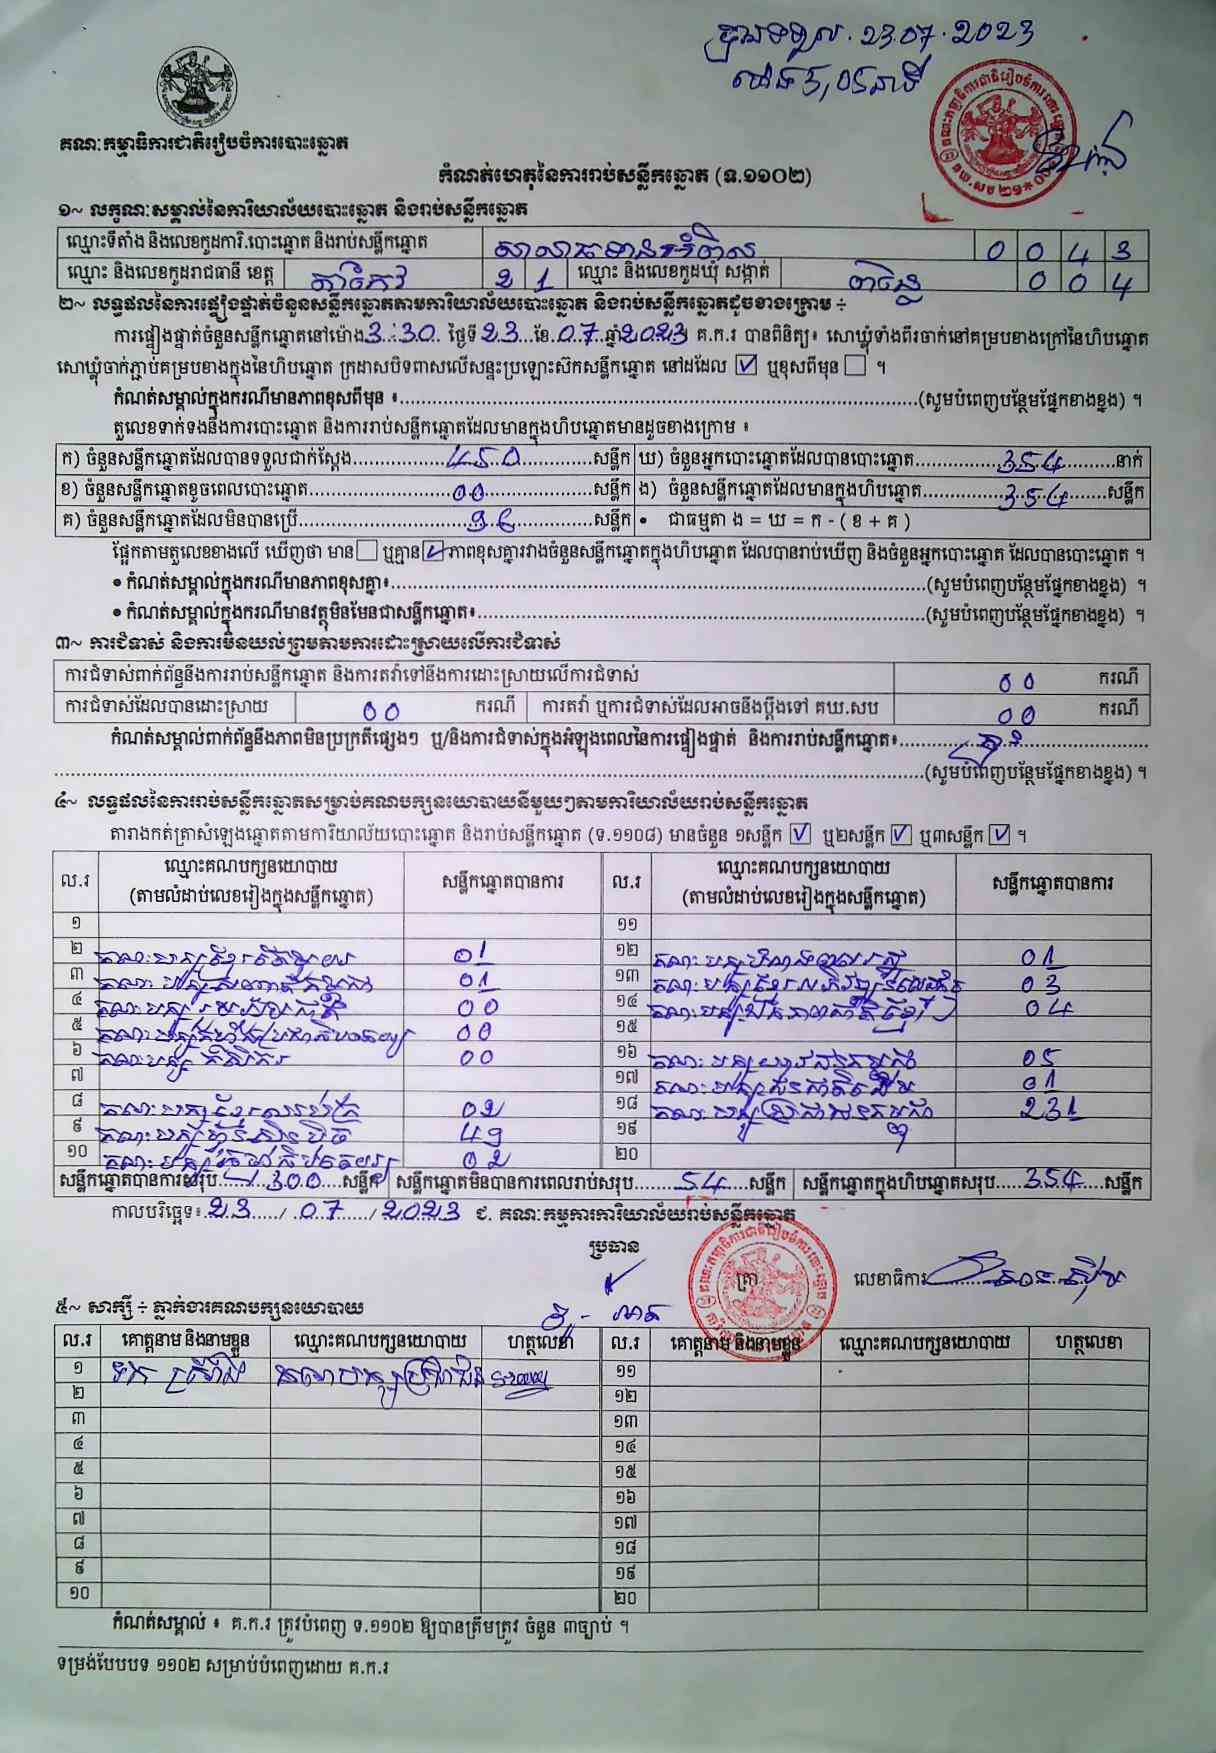 បានទទួល . 23.07.2023
ម៉ោង 5, 05 នាទី
គណៈកម្មាធិការជាតិរៀបចំការបោះឆ្នោត
កំណត់ហេតុនៃការរាប់សន្លឹកឆ្នោត (ទ.១១០២)
១~ លក្ខណៈសម្គាល់នៃការិយាល័យបោះឆ្នោត និងរាប់សន្លឹកឆ្នោត
ឈ្មោះទីតាំង និងលេខកូដការិ.បោះឆ្នោត និងរាប់សន្លឹកឆ្នោត 0 0 4 3
ឈ្មោះ និងលេខកូដរាជធានី ខេត្ត តាកែវ 2 1 ឈ្មោះ និងលេខកូដឃុំ សង្កាត់ 0 0 4
២~ លទ្ធផលនៃការផ្ទៀងផ្ទាត់ចំនួនសន្លឹកឆ្នោតតាមការិយាល័យបោះឆ្នោត និងរាប់សន្លឹកឆ្នោតដូចខាងក្រោម ÷
ការផ្ទៀងផ្ទាត់ចំនួនសន្លឹកឆ្នោតនៅម៉ោង 3:30 ថ្ងៃទី 23 ខែ 07 ឆ្នាំ 2023 គ.ក.រ បានពិនិត្យ៖ សោឃ្លុំទាំងពីរចាក់នៅគម្របខាងក្រៅនៃហិបឆ្នោត
សោឃ្លុំចាក់ភ្ជាប់គម្របខាងក្នុងនៃហិបឆ្នោត ក្រដាសបិទពាសលើសន្ទះប្រឡោះស៊កសន្លឹកឆ្នោត នៅដដែល ☑ ឬខុសពីមុន ☐ ។
កំណត់សម្គាល់ក្នុងករណីមានភាពខុសពីមុន ៖ (សូមបំពេញបន្ថែមផ្នែកខាងខ្នង) ។
តួលេខទាក់ទងនឹងការបោះឆ្នោត និងការរាប់សន្លឹកឆ្នោតដែលមានក្នុងហិបឆ្នោតមានដូចខាងក្រោម ៖
ក) ចំនួនសន្លឹកឆ្នោតដែលបានទទួលជាក់ស្តែង 450 សន្លឹក ឃ) ចំនួនអ្នកបោះឆ្នោតដែលបានបោះឆ្នោត 354 នាក់
ខ) ចំនួនសន្លឹកឆ្នោតខូចពេលបោះឆ្នោត 00 សន្លឹក ង) ចំនួនសន្លឹកឆ្នោតដែលមានក្នុងហិបឆ្នោត 354 សន្លឹក
គ) ចំនួនសន្លឹកឆ្នោតដែលមិនបានប្រើ 96 សន្លឹក • ជាធម្មតា ង = ឃ = ក - ( ខ + គ )
ផ្អែកតាមតួលេខខាងលើ ឃើញថា មាន ☐ ឬគ្មាន ☑ ភាពខុសគ្នារវាងចំនួនសន្លឹកឆ្នោតក្នុងហិបឆ្នោត ដែលបានរាប់ឃើញ និងចំនួនអ្នកបោះឆ្នោត ដែលបានបោះឆ្នោត ។
• កំណត់សម្គាល់ក្នុងករណីមានភាពខុសគ្នា៖ (សូមបំពេញបន្ថែមផ្នែកខាងខ្នង) ។
• កំណត់សម្គាល់ក្នុងករណីមានវត្ថុមិនមែនជាសន្លឹកឆ្នោត៖ (សូមបំពេញបន្ថែមផ្នែកខាងខ្នង) ។
៣~ ការជំទាស់ និងការមិនយល់ព្រមតាមការដោះស្រាយលើការជំទាស់
ការជំទាស់ពាក់ព័ន្ធនឹងការរាប់សន្លឹកឆ្នោត និងការតវ៉ាទៅនឹងការដោះស្រាយលើការជំទាស់ 00 ករណី
ការជំទាស់ដែលបានដោះស្រាយ 00 ករណី ការតវ៉ា ឬការជំទាស់ដែលអាចនឹងប្តឹងទៅ គឃ.សប 00 ករណី
កំណត់សម្គាល់ពាក់ព័ន្ធនឹងភាពមិនប្រក្រតីផ្សេងៗ ឬ/និងការជំទាស់ក្នុងអំឡុងពេលនៃការផ្ទៀងផ្ទាត់ និងការរាប់សន្លឹកឆ្នោត៖ គ្មាន
(សូមបំពេញបន្ថែមផ្នែកខាងខ្នង) ។
៤~ លទ្ធផលនៃការរាប់សន្លឹកឆ្នោតសម្រាប់គណបក្សនយោបាយនីមួយៗតាមការិយាល័យរាប់សន្លឹកឆ្នោត
តារាងកត់ត្រាសំឡេងឆ្នោតតាមការិយាល័យបោះឆ្នោត និងរាប់សន្លឹកឆ្នោត (ទ.១១០៨) មានចំនួន ១សន្លឹក ☑ ឬ២សន្លឹក ☑ ឬ៣សន្លឹក ☑ ។
ល.រ ឈ្មោះគណបក្សនយោបាយ (តាមលំដាប់លេខរៀងក្នុងសន្លឹកឆ្នោត) សន្លឹកឆ្នោតបានការ ល.រ ឈ្មោះគណបក្សនយោបាយ (តាមលំដាប់លេខរៀងក្នុងសន្លឹកឆ្នោត) សន្លឹកឆ្នោតបានការ
១ ១១
២ គណៈបក្ស 01 ១២ គណៈបក្ស 01
៣ គណៈបក្ស 01 ១៣ គណៈបក្ស 03
៤ គណៈបក្ស 00 ១៤ គណៈបក្ស 04
៥ គណៈបក្ស 00 ១៥
៦ គណៈបក្ស កសិករ 00 ១៦ គណៈបក្ស 05
៧ ១៧ គណៈបក្ស 01
៨ គណៈបក្ស 02 ១៨ គណៈបក្ស ប្រជាជនកម្ពុជា 231
៩ គណៈបក្ស ហ៊្វុនស៊ិនប៉ិច 49 ១៩
១០ គណៈបក្ស 02 ២០
សន្លឹកឆ្នោតបានការសរុប 300 សន្លឹក សន្លឹកឆ្នោតមិនបានការពេលរាប់សរុប 54 សន្លឹក សន្លឹកឆ្នោតក្នុងហិបឆ្នោតសរុប 354 សន្លឹក
កាលបរិច្ឆេទ៖ 23 / 07 / 2023 ជ. គណៈកម្មការការិយាល័យរាប់សន្លឹកឆ្នោត
ប្រធាន
ត្រា លេខាធិការ
៥~ សាក្សី ÷ ភ្នាក់ងារគណបក្សនយោបាយ
ល.រ គោត្តនាម និងនាមខ្លួន ឈ្មោះគណបក្សនយោបាយ ហត្ថលេខា ល.រ គោត្តនាម និងនាមខ្លួន ឈ្មោះគណបក្សនយោបាយ ហត្ថលេខា
១ គណបក្សប្រជាជន ១១
២ ១២
៣ ១៣
៤ ១៤
៥ ១៥
៦ ១៦
៧ ១៧
៨ ១៨
៩ ១៩
១០ ២០
កំណត់សម្គាល់ ៖ គ.ក.រ ត្រូវបំពេញ ទ.១១០២ ឱ្យបានត្រឹមត្រូវ ចំនួន ៣ច្បាប់ ។
ទម្រង់បែបបទ ១១០២ សម្រាប់បំពេញដោយ គ.ក.រ